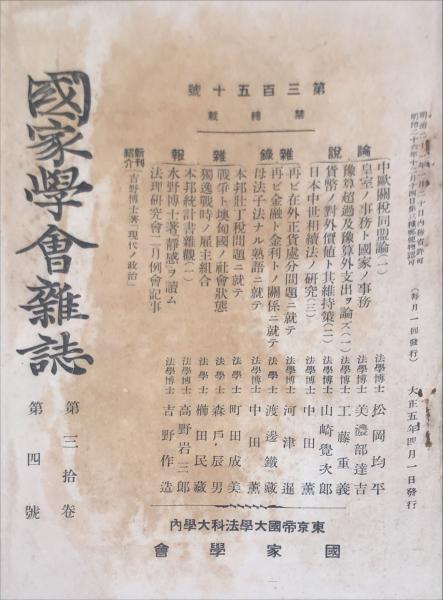 明治二十一年一月三十日内務省許可
明治二十六年十二月十四日第三種郵便物認可
(毎月一回發行) 大正五年四月一日發行
第三百五十號
禁轉載
論說
中歐關税同盟論(一) 法學博士 松岡均平
皇室ノ事務ト國家ノ事務 法學博士 美濃部達吉
豫算超過及豫算外支出ヲ論ズ(一) 法學博士 工藤重義
貨幣ノ對外價値ト其維持策(二) 法學博士 山崎覺次郎
日本中世相續法ノ研究(三) 法學博士 中田薰
雜錄
再ビ在外正貨處分問題ニ就テ 法學博士 河津暹
再ビ金融ト金利トノ關係ニ就テ 法學士 渡邊鐵藏
母法子法ナル熟語ニ就テ 法學博士 中田薰
本邦壯丁税問題ニ就テ 法學士 町田成美
雜報
戰爭ト墺匈國ノ社會狀態 法學士 森戶辰男
獨逸戰時ノ雇主組合 法學士 櫛田民藏
本邦統計書雜觀(二) 法學博士 高野岩三郎
水野博士著『靜感』ヲ讀ム 法學博士 吉野作造
法理研究會二月例會記事
新刊紹介 吉野博士著『現代ノ政治』
東京帝國大學法科大學內
國家學會
國家學會雜誌
第三拾卷 第四號